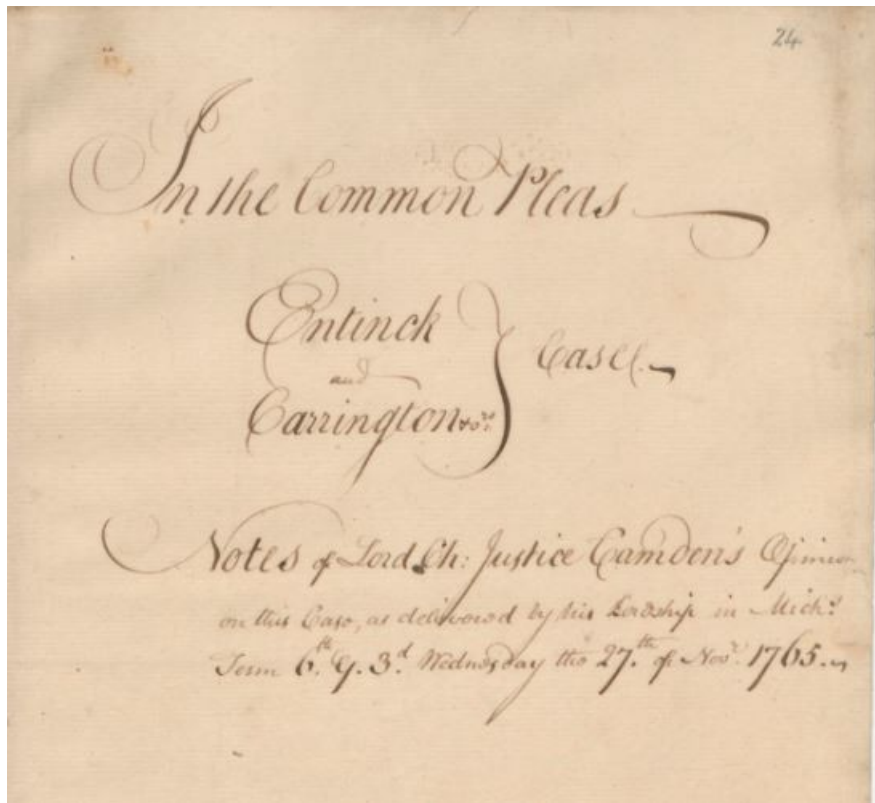 24
In the Common Pleas
Entinck
and
Carrington & ors.
Case
Notes of Lord Ch: Justice Camden's Opinion
on this Case, as delivered by his Lordship in Michs.
Term 6.th G. 3.d Wednesday the 27.th of Novr. 1765.